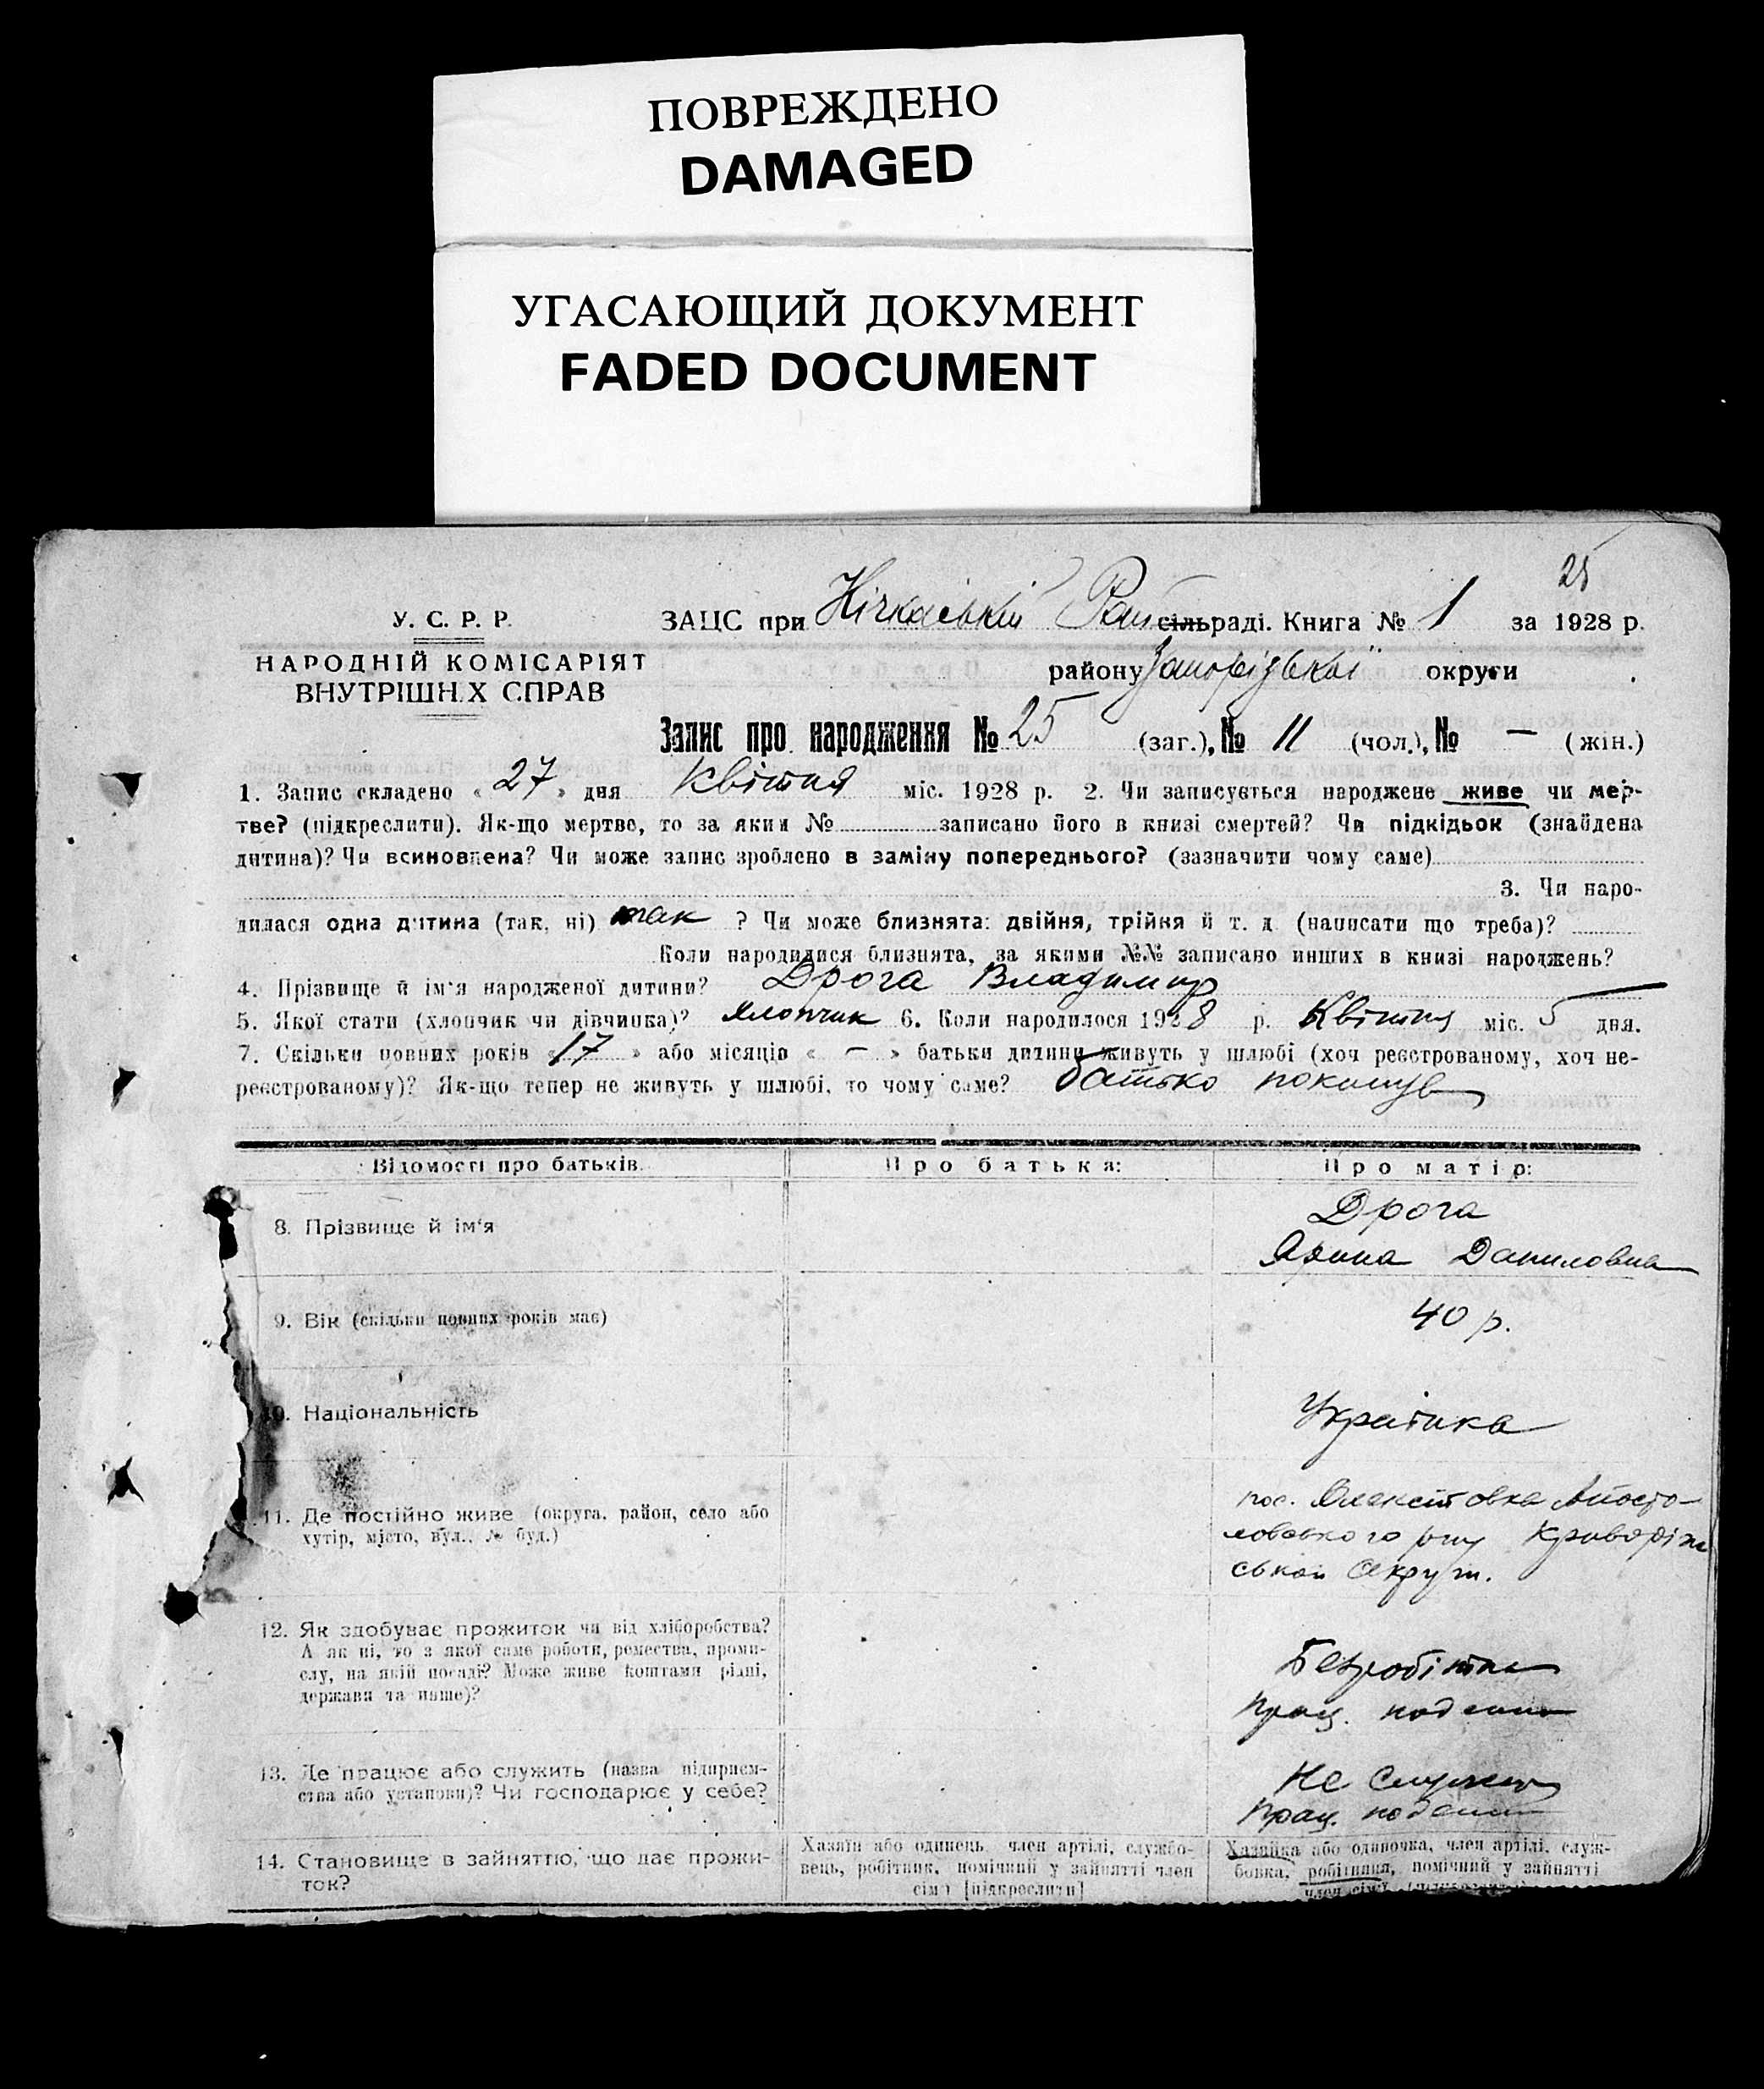 ПОВРЕЖДЕНО
DAMAGED
УГАСАЮЩИЙ ДОКУМЕНТ
FADED DOCUMENT
25
У. С. Р. Р.
НАРОДНІЙ КОМІСАРІЯТ
ВНУТРІШН.Х СПРАВ
ЗАЦС при Кічкаській Рай сільраді. Книга № 1 за 1928 р.
району Запорізької округи
Запис про народження № 25 (заг.), № 11 (чол.), № — (жін.)
1. Запис складено « 27 » дня Квітня міс. 1928 р. 2. Чи записується народжене живе чи мер-
тве? (підкреслити). Як-що мертве, то за яким № записано його в книзі смертей? Чи підкідьок (знайдена
дитина)? Чи всиновлена? Чи може запис зроблено в заміну попереднього? (зазначити чому саме)
3. Чи наро-
дилася одна дитина (так, ні) так ? Чи може близнята: двійня, трійня й т. д. (написати що треба)?
Коли народилися близнята, за якими №№ записано инших в книзі народжень?
4. Прізвище й ім'я народженої дитини? Дрога Владимир
5. Якої стати (хлопчик чи дівчинка)? Хлопчик 6. Коли народилося 1928 р. Квітня міс. 5 дня.
7. Скільки повних років « 17 » або місяців « — » батьки дитини живуть у шлюбі (хоч реєстрованому, хоч не-
реєстрованому)? Як-що тепер не живуть у шлюбі, то чому саме? батько покинув
Відомості про батьків. Про батька: Про матір:
8. Прізвище й ім'я Дрога
Ярина Даниловна
9. Вік (скільки повних років має) 40 р.
10. Національність Українка
11. Де постійно живе (округа, район, село або
хутір, місто, вул., № буд.)
пос. Апосто-
ловського р-ну Криворіж
ської Округи.
12. Як здобуває прожиток чи від хліборобства?
А як ні, то з якої саме роботи, ремества, проми-
слу, на якій посаді? Може живе коштами рідні,
держави та инше)?
Безробітна
Прац. поденно
13. Де працює або служить (назва підприєм-
ства або установи)? Чи господарює у себе?
Не служить
Прац. поденно
14. Становище в зайняттю, що дає прожи-
ток?
Хазяїн або одинець, член артілі, службо-
вець, робітник, помічний у зайнятті член
сім'ї [підкреслити]
Хазяйка або одиночка, член артілі, служ-
бовка, робітниця, помічний у зайнятті
член сім'ї